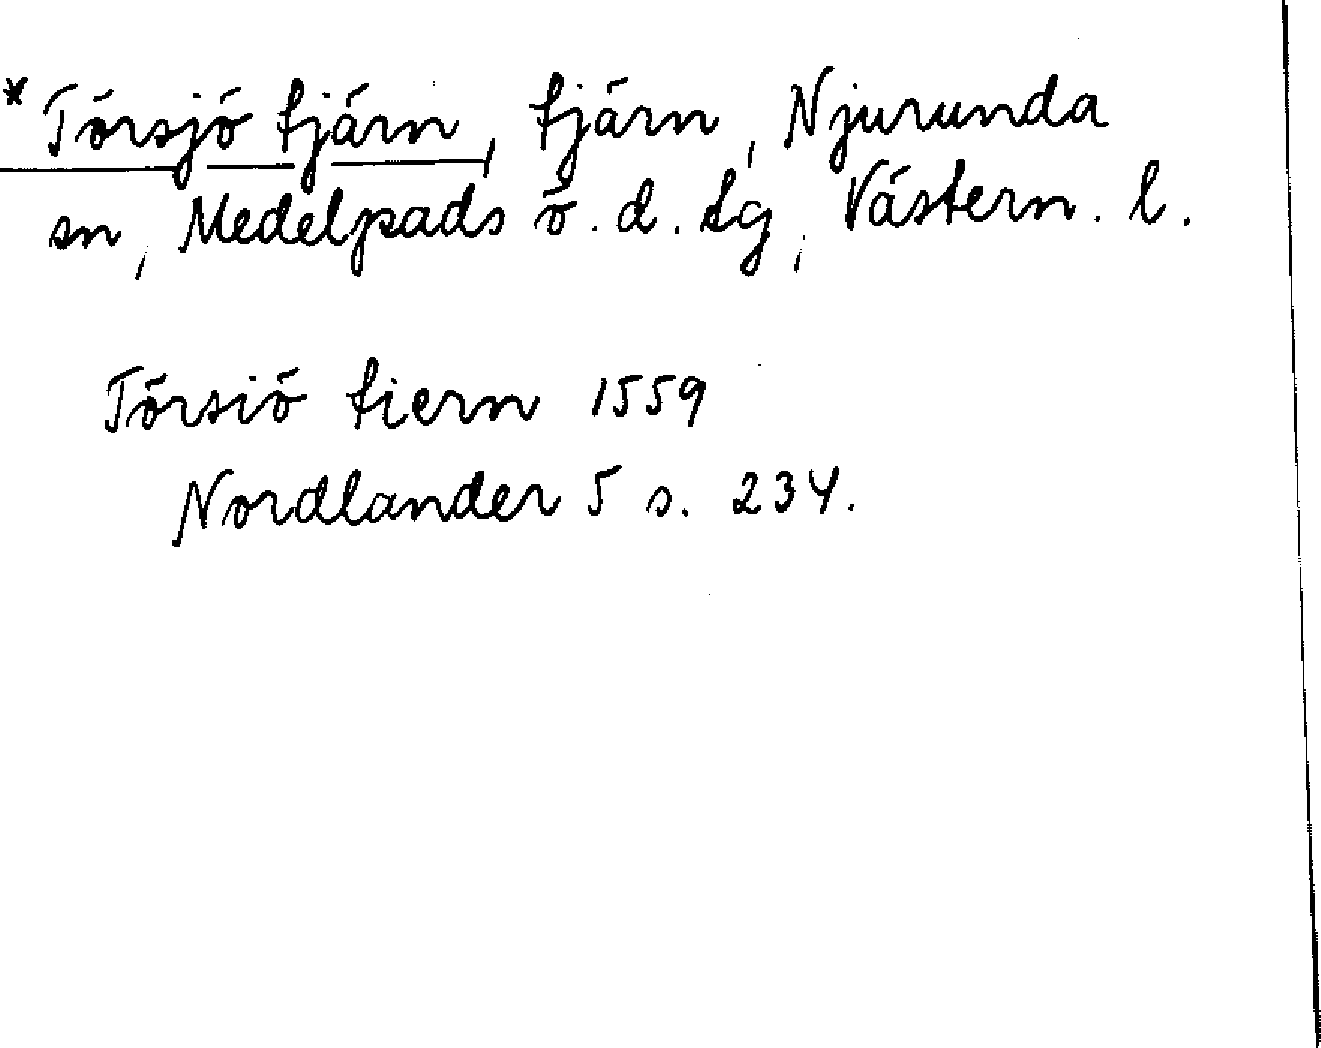 * Törsjö tjärn, tjärn, Njurunda
sn, Medelpads ö. d. tg, Västern. l.
Törsiö tiern 1559
Nordlander 5 s. 234.